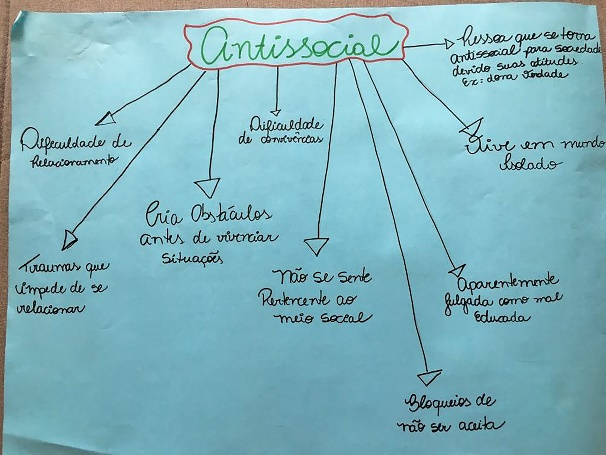 Antissocial
Pessoa que se torna
antissocial para sociedade
devido suas atitudes.
Ex: dona
Dificuldade de
Relacionamento
Dificuldade
de convivências
Vive em mundo
Isolado
Cria Obstáculos
antes de vivenciar
situações
Traumas que
impede de se
relacionar
Não se sente
Pertencente ao
meio social
Aparentemente
julgada como mal
Educada
Bloqueios de
não ser aceita